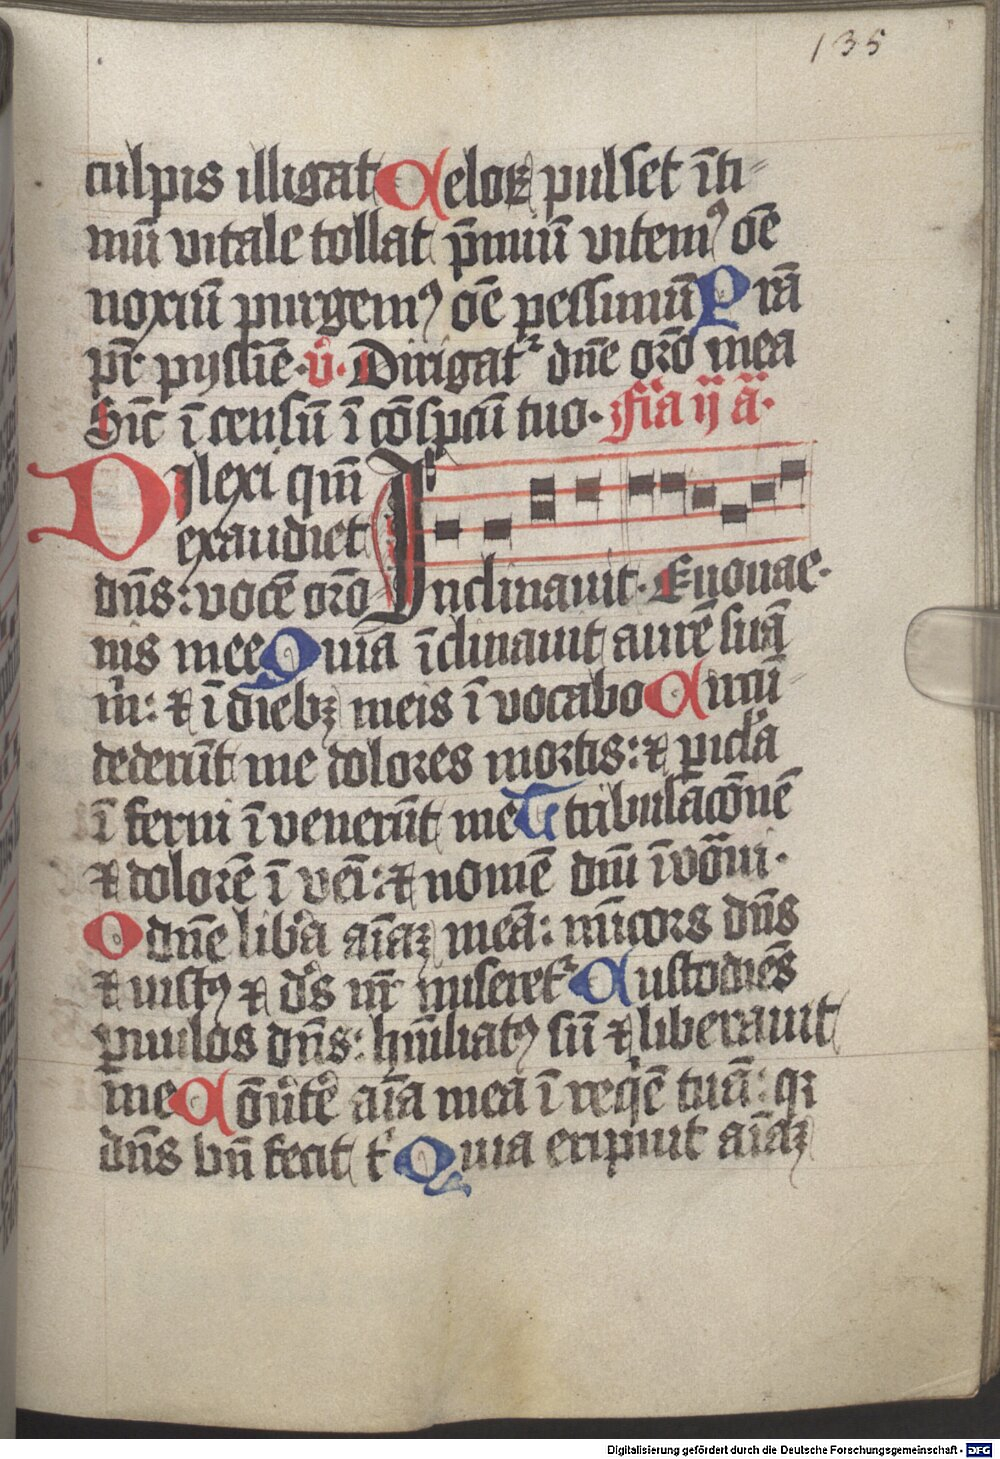 135
culpis illigat Celorꝝ pulset īti⸗
mū vitale tollat p̄miū vitemꝰ oē
noxiū purgemꝰ oē pessimū P̄rā
pr̄ pyssīe · v̊ · Dirigat᷑ dn̄e or̄o mea
Sic̄ īcensū ī cōspcū tuo · Fīa ij ā ·
Dilexi qm̄
exaudiet
dn̄s : vocē or̄o Inclinauit · Euouae ·
nis mee Quia īclinauit aurē suā
m̄ : ⁊ ī diebꝫ meis īvocabo Circū⸗
dederūt me dolores mortis : ⁊ picl̄a
īferni īvenerūt me Tribulac̄onē
⁊ dolorē īvēi : ⁊ nomē dn̄i īvōcui ·
O dn̄e libā aīaꝫ meā : mīcors dn̄s
⁊ iustꝰ ⁊ ds̄ nr̄ miseret᷑ Custodiēs
puulos dn̄s : hūiliatꝰ sū ⁊ liberauit
me Cōuͥtē aīa mea ī reqͥē tuā : qꝛ
dn̄s bn̄ fecit tͥ Quia eripuit aīaꝫ
Digitalisierung gefördert durch die Deutsche Forschungsgemeinschaft - DFG